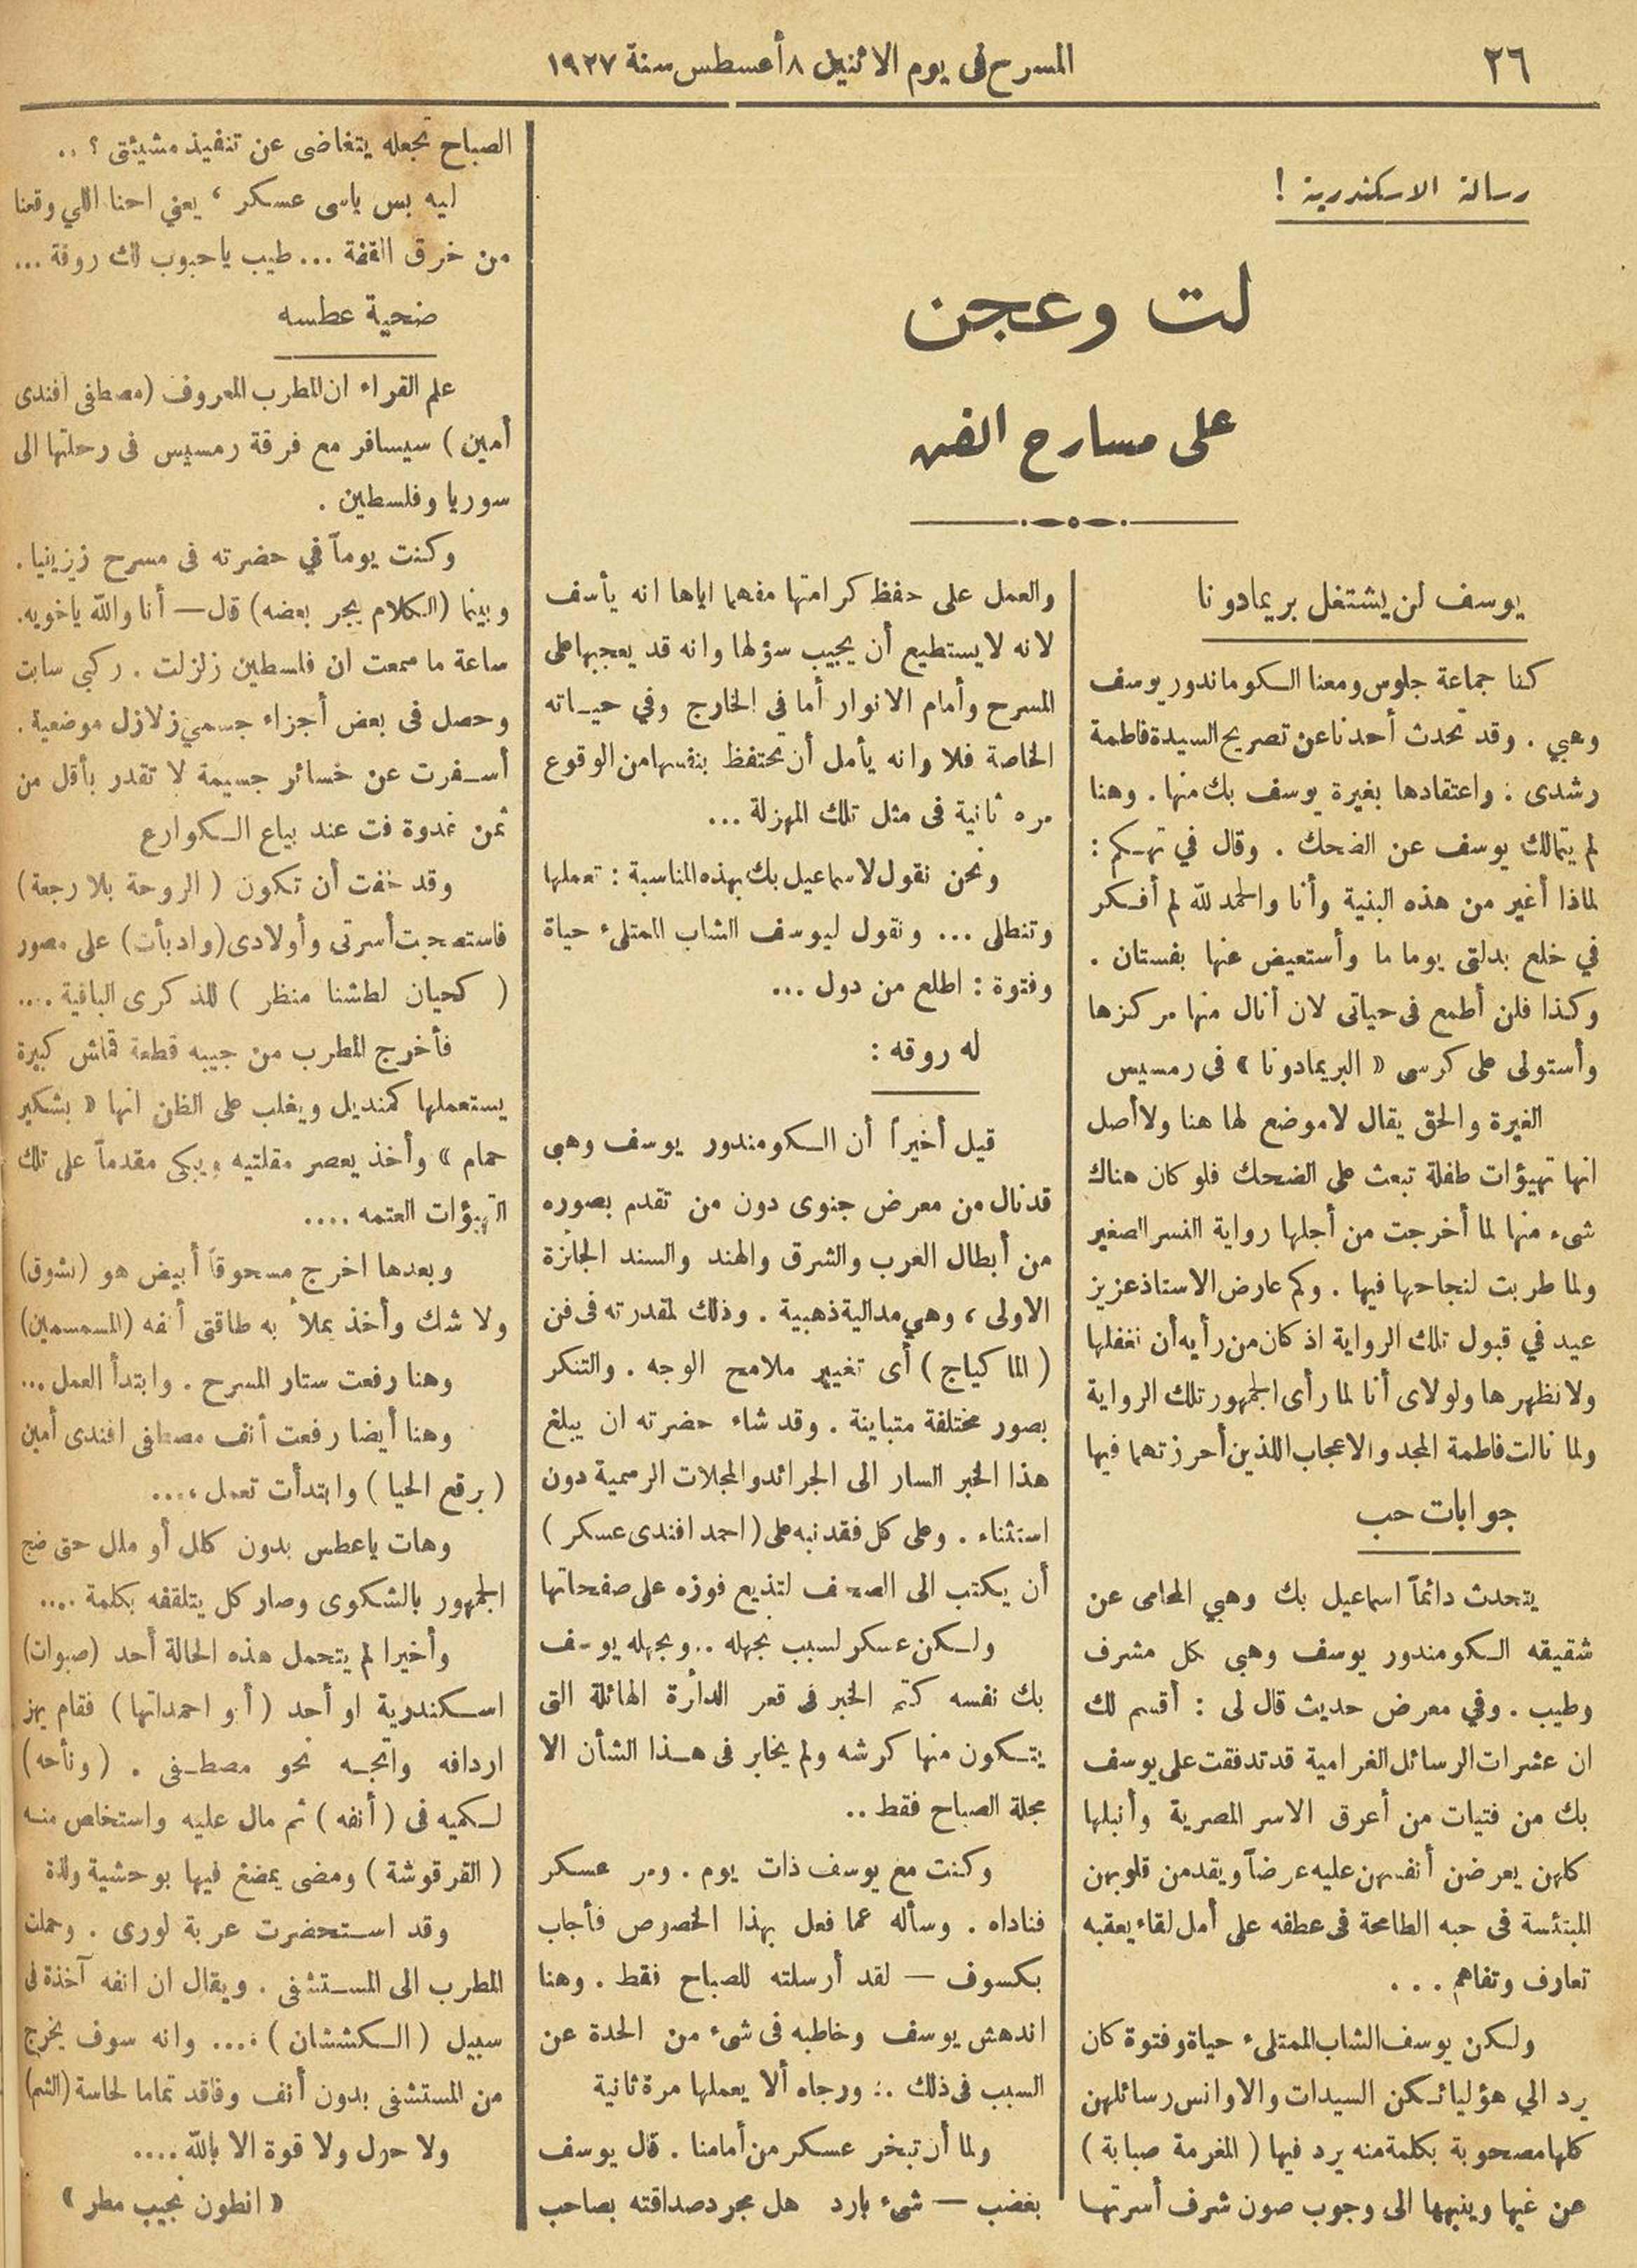 ٢٦
المسرح فى يوم الاثنين ٨ أعسطس سنة ١٩٢٧
رسالة الاسكندرية !
لت وعجن
على مسارح الفن
يوسف لن يشتغل بريمادونا
كنا جماعة جلوس ومعنا الكوماندور يوسف
وهبي . وقد تحدث أحدنا عن تصريح السيدة فاطمة
رشدى : واعتقادها بغيرة يوسف بك منها . وهنا
لم يتمالك يوسف عن الضحك . وقال في تهكم :
لماذا أغير من هذه البنية وأنا والحمد لله لم أفكر
في خلع بدلتى يوما ما وأستعيض عنها بفستان .
وكذا فلن أطمع فى حياتى لان أنال منها مركزها
وأستولى على كرسى « البريمادونا » فى رمسيس
الغيرة والحق يقال لا موضع لها هنا ولا أصل
انها تهيؤات طفلة تبعث على الضحك فلو كان هناك
شىء منها لما أخرجت من أجلها رواية النسر الصغير
ولما طربت لنجاحها فيها . وكم عارض الاستاذ عزيز
عيد في قبول تلك الرواية اذ كان من رأيه أن نغفلها
ولا نظهرها ولولاى أنا لما رأى الجمهور تلك الرواية
ولما نالت فاطمة المجد والاعجاب اللذين أحرزتهما فيها
جوابات حب
يتحدث دائماً اسماعيل بك وهبي المحامى عن
شقيقه الكومندور يوسف وهبى بكل مشرف
وطيب . وفي معرض حديث قال لى : أقسم لك
ان عشرات الرسائل الغرامية قد تدفقت على يوسف
بك من فتيات من أعرق الاسر المصرية وأنبلها
كلهن يعرضن أنفسهن عليه عرضاً ويقدمن قلوبهن
المبتئسة فى حبه الطامحة فى عطفه على أمل لقاء يعقبه
تعارف وتفاهم . . .
ولكن يوسف الشاب الممتلىء حياة وفتوة كان
يرد الي هؤليائكن السيدات والاوانس رسائلهن
كلها مصحوبة بكلمة منه يرد فيها ( المغرمة صبابة )
عن غيها وينبهها الى وجوب صون شرف أسرتها
والعمل على حفظ كرامتها مفهما اياها انه يأسف
لانه لا يستطيع أن يجيب سؤلها وانه قد يعجبها على
المسرح وأمام الانوار أما فى الخارج وفي حياته
الخاصة فلا وانه يأمل أن تحتفظ بنفسها من الوقوع
مره ثانية فى مثل تلك المهزلة ...
ونحن نقول لاسماعيل بك بهذه المناسبة : تعملها
وتنطلى ... ونقول ليوسف الشاب الممتلىء حياة
وفتوة : اطلع من دول ...
له روقه :
قيل أخيراً أن الكومندور يوسف وهبي
قد نال من معرض جنوى دون من تقدم بصوره
من أبطال الغرب والشرق والهند والسند الجائزة
الاولى ، وهي مدالية ذهبية . وذلك لمقدرته فى فن
( الماكياج ) أى تغيير ملامح الوجه . والتنكر
بصور مختلفة متباينة . وقد شاء حضرته ان يبلغ
هذا الخبر السار الى الجرائد والمجلات الرسمية دون
استثناء . وعلى كل فقد نبه على ( احمد افندى عسكر )
أن يكتب الى الصحف لتذيع فوزه على صفحاتها
ولكن عسكر لسبب نجهله .. ويجهله يوسف
بك نفسه كتم الخبر فى قعر الدأرة الهائلة التى
يتكون منها كرشه ولم يخابر فى هذا الشأن الا
مجلة الصباح فقط ..
وكنت مع يوسف ذات يوم . ومر عسكر
فناداه . وسأله عما فعل بهذا الخصوص فأجاب
بكسوف — لقد أرسلته للصباح فقط . وهنا
اندهش يوسف وخاطبه فى شىء من الحدة عن
السبب فى ذلك .: ورجاه ألا يعملها مرة ثانية
ولما أن تبخر عسكر من أمامنا . قال يوسف
بغضب — شىء بارد هل مجرد صداقته بصاحب
الصباح تجعله يتغاضى عن تنفيذ مشيئتى ؟ ..
ليه بس ياسى عسكر ، يعني احنا اللي وقعنا
من خرق القفة ... طيب يا حبوب لك روقة ...
ضحية عطسه
علم القراء ان المطرب المعروف (مصطفى افندى
أمين ) سيسافر مع فرقة رمسيس فى رحلتها الى
سوريا وفلسطين .
وكنت يوماً في حضرته فى مسرح زيزينيا .
وبينما (الكلام يجر بعضه) قال — أنا والله ياخويه.
ساعة ما سمعت ان فلسطين زلزلت . ركبي سابت
وحصل فى بعض أجزاء جسمي زلازل موضعية .
أسفرت عن خسائر جسيمة لا تقدر بأقل من
ثمن غدوة فت عند بياع الكوارع
وقد خفت أن تكون ( الروحة بلا رجعة )
فاستصحبت أسرتى وأولادى (وادبأت) على مصور
( كحيان لطشنا منظر ) للذكرى الباقية ....
فأخرج المطرب من جيبه قطعة قماش كبيرة
يستعملها كمنديل ويغلب على الظن انها « بشكير
حمام » وأخذ يعصر مقلتيه ويبكى مقدماً على تلك
التهيؤات العتمه ....
وبعدها اخرج مسحوقاً أبيض هو (نشوق)
ولا شك وأخذ يملأ به طاقتى أنفه (المسمسمين)
وهنا رفعت ستار المسرح . وابتدأ العمل ...
وهنا أيضا رفعت أنف مصطفى افندى أمين
( برقع الحيا ) وابتدأت تعمل ....
وهات ياعطس بدون كلل أو ملل حتى ضج
الجمهور بالشكوى وصار كل يتلقفه بكلمة ....
وأخيرا لم يتحمل هذه الحالة أحد (صبوات)
اسكندرية او أحد ( أبو احمداتها ) فقام يهز
اردافه واتجه نحو مصطفى . ( وناحه )
لكميه فى ( أنفه ) ثم مال عليه واستخلص منه
( القرقوشة ) ومضى يمضغ فيها بوحشية ولذة
وقد استحضرت عربة لورى . وحملت
المطرب الى المستشفى . ويقال ان انفه آخذة فى
سبيل ( الكششان ) .... وانه سوف يخرج
من المستشفى بدون أنف وفاقد تماما لحاسة (الشم)
ولا حول ولا قوة الا بالله ....
« انطون نجيب مطر »